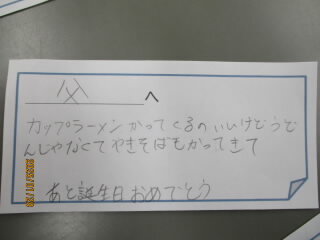 父へ
カップラーメンかってくるのいいけどうど
んじゃなくてやきそばもかってきて
あと誕生日おめでとう